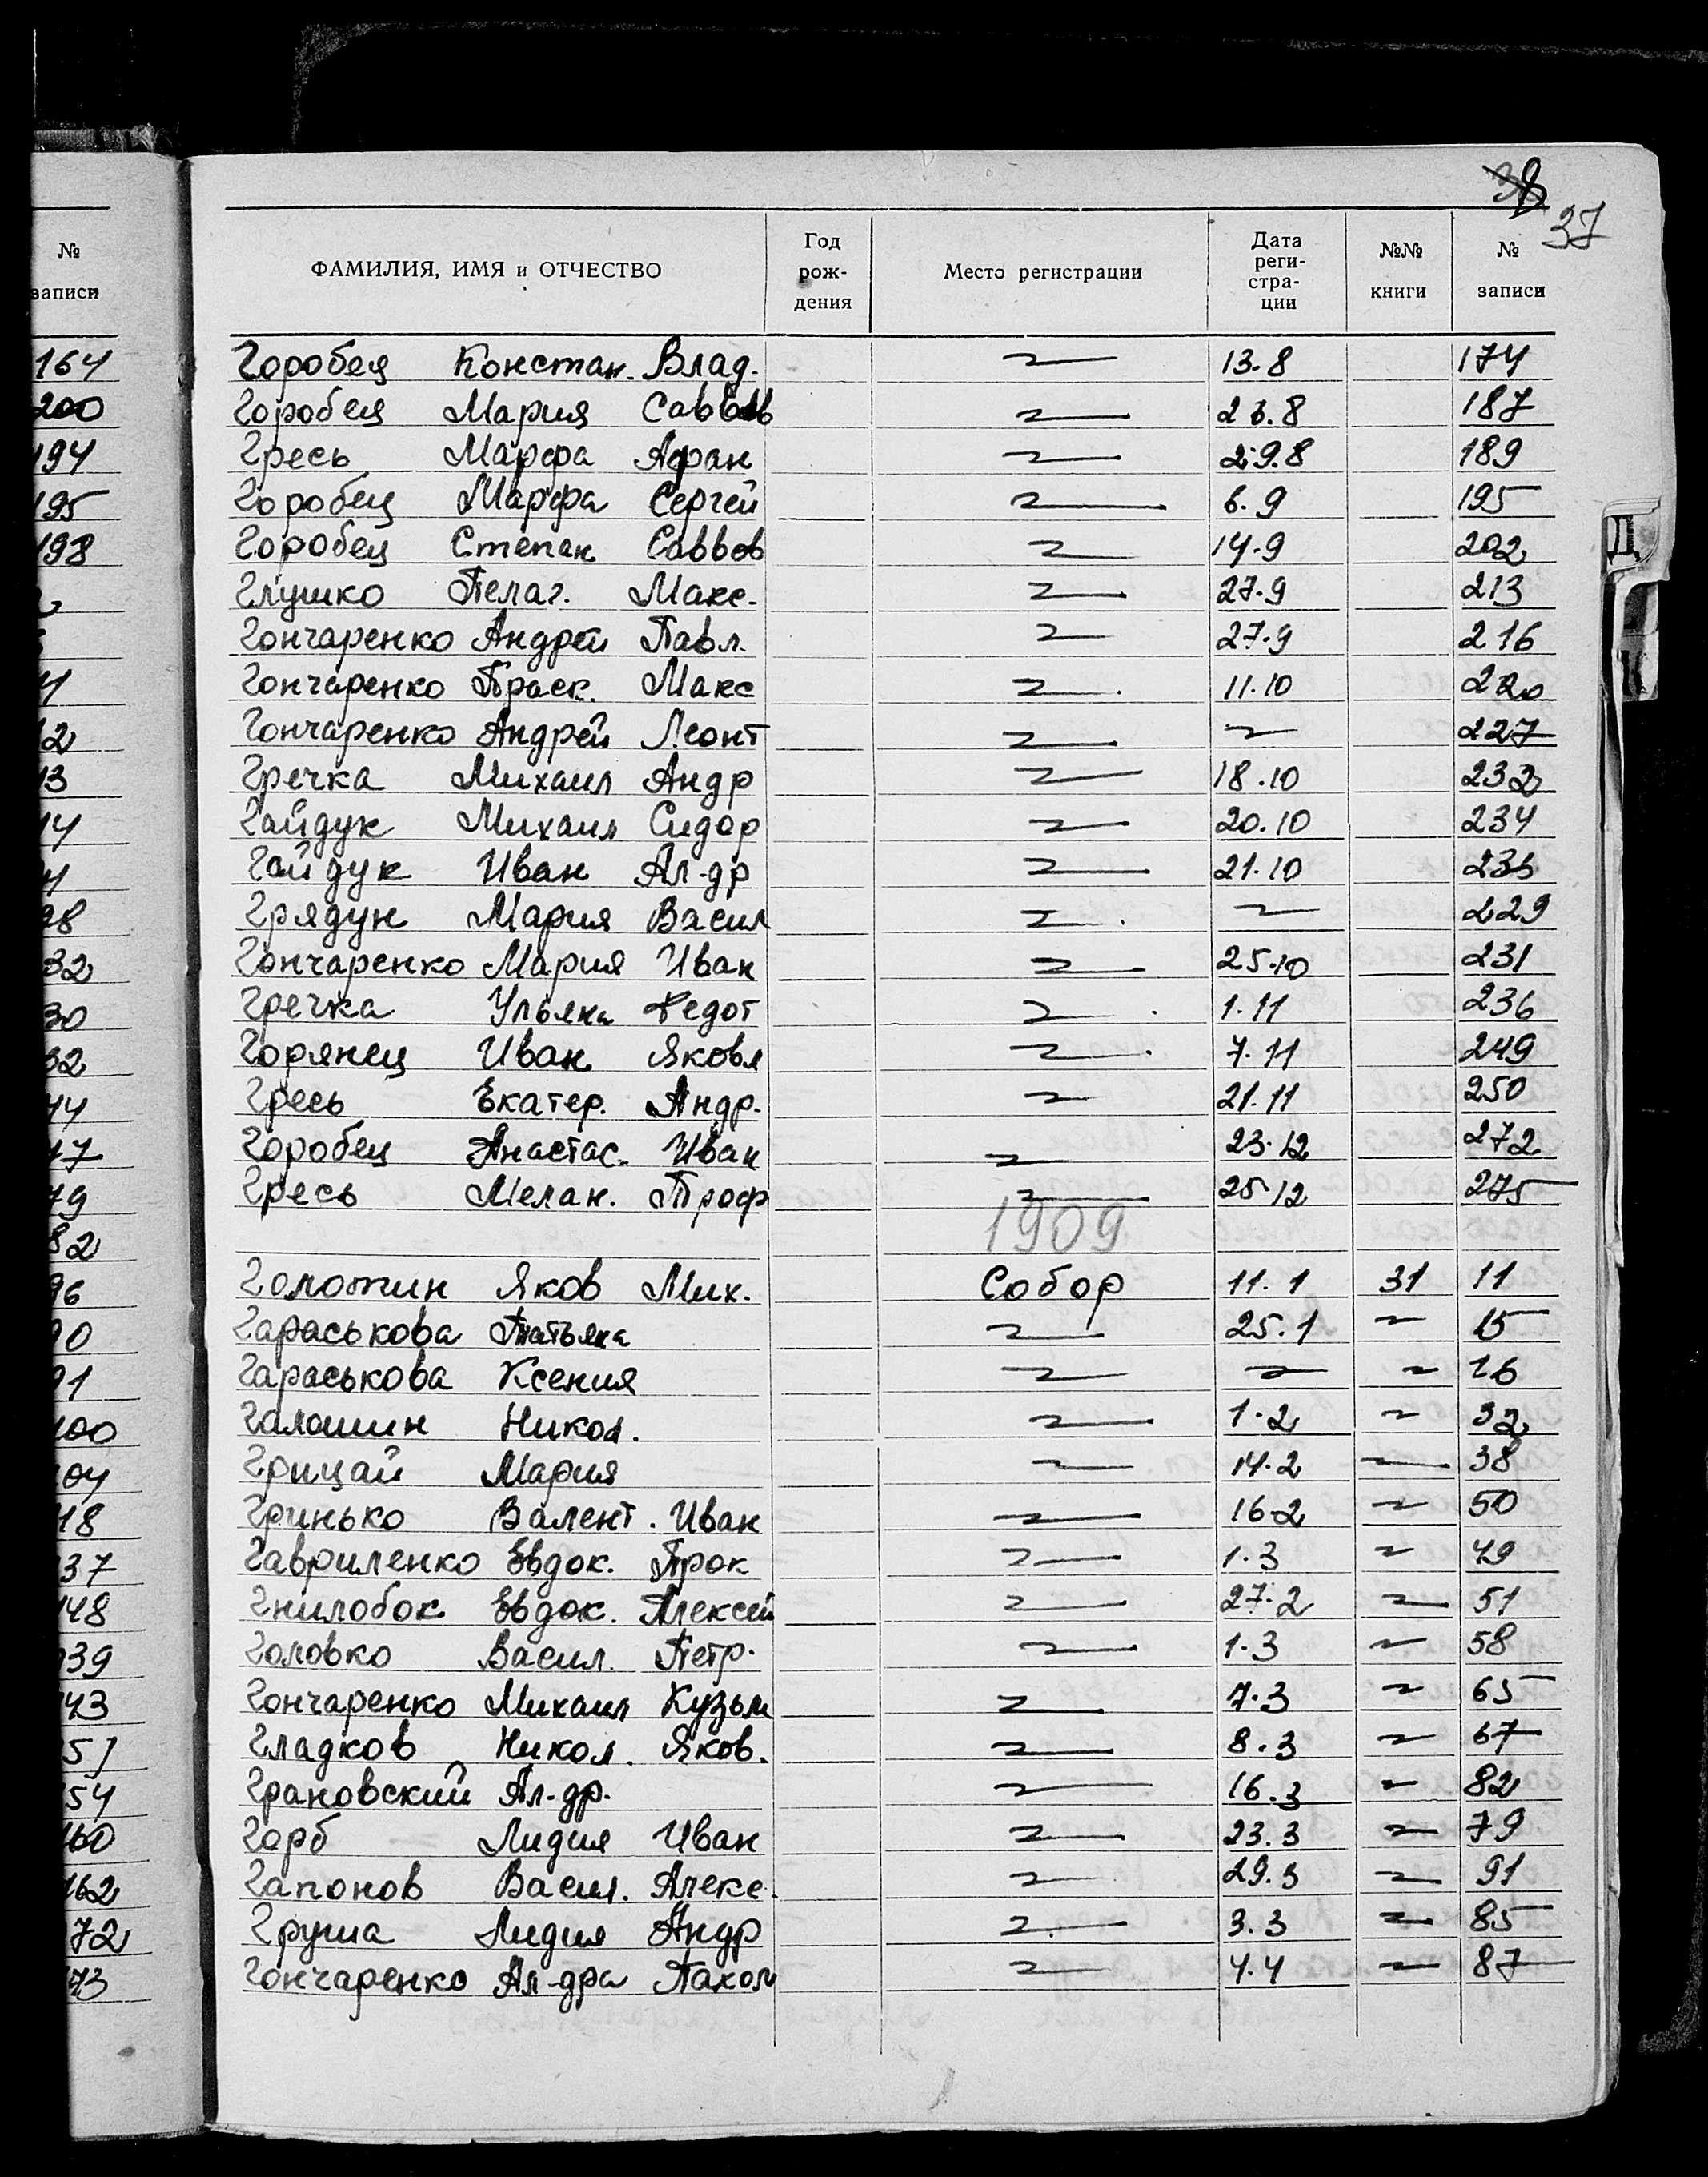 38
37
№ записи
ФАМИЛИЯ, ИМЯ и ОТЧЕСТВО Год рож- дения Место регистрации Дата реги- стра- ции №№ книги № записи
164 Горобец Констан. Влад. 〃 13.8 174
200 Горобец Мария Саввов 〃 23.8 187
194 Гресь Марфа Афан 〃 29.8 189
195 Горобец Марфа Сергей 〃 6.9 195
198 Горобец Степан Саввов 〃 14.9 202
Глушко Пелаг. Макс. 〃 27.9 213
Гончаренко Андрей Павл. 〃 27.9 216
Гончаренко Праск. Макс 〃 11.10 220
Гончаренко Андрей Леонт 〃 〃 227
Гречка Михаил Андр 〃 18.10 232
Гайдук Михаил Сидор 〃 20.10 234
Гайдук Иван Ал-др 〃 21.10
Грядун Мария Васил 〃 〃 229
32 Гончаренко Мария Иван 〃 25.10 231
30 Гречка Ульяна Федот 〃 1.11 236
32 Горянец Иван Яковл 〃 7.11 249
Гресь Екатер. Андр. 〃 21.11 250
Горобец Анастас. Иван 〃 23.12 272
79 Гресь Мелан. Троф 〃 25.12 275
82 1909
96 Голотин Яков Мих. Собор 11.1 31 11
90 Гараськова Татьяна 〃 25.1 〃 15
91 Гараськова Ксения 〃 〃 〃 16
100 Галошин Никол. 〃 1.2 〃 32
104 Грицай Мария 〃 14.2 〃 38
118 Гринько Валент. Иван 〃 16.2 〃 50
137 Гавриленко Евдок. Прок 〃 1.3 〃 49
148 Гнилобок Евдок. Алексей 〃 27.2 〃 51
139 Головко Васил. Петр. 〃 1.3 〃 58
143 Гончаренко Михаил Кузьм 〃 7.3 〃 65
151 Гладков Никол. Яков. 〃 8.3 〃 67
154 Грановский Ал-др. 〃 16.3 〃 82
160 Горб Лидия Иван 〃 23.3 〃 79
162 Гапонов Васил. Алекс. 〃 29.3 〃 91
172 Груша Лидия Андр 〃 3.3 〃 85
173 Гончаренко Ал-дра Пахом 〃 4.4 〃 87
Д
К